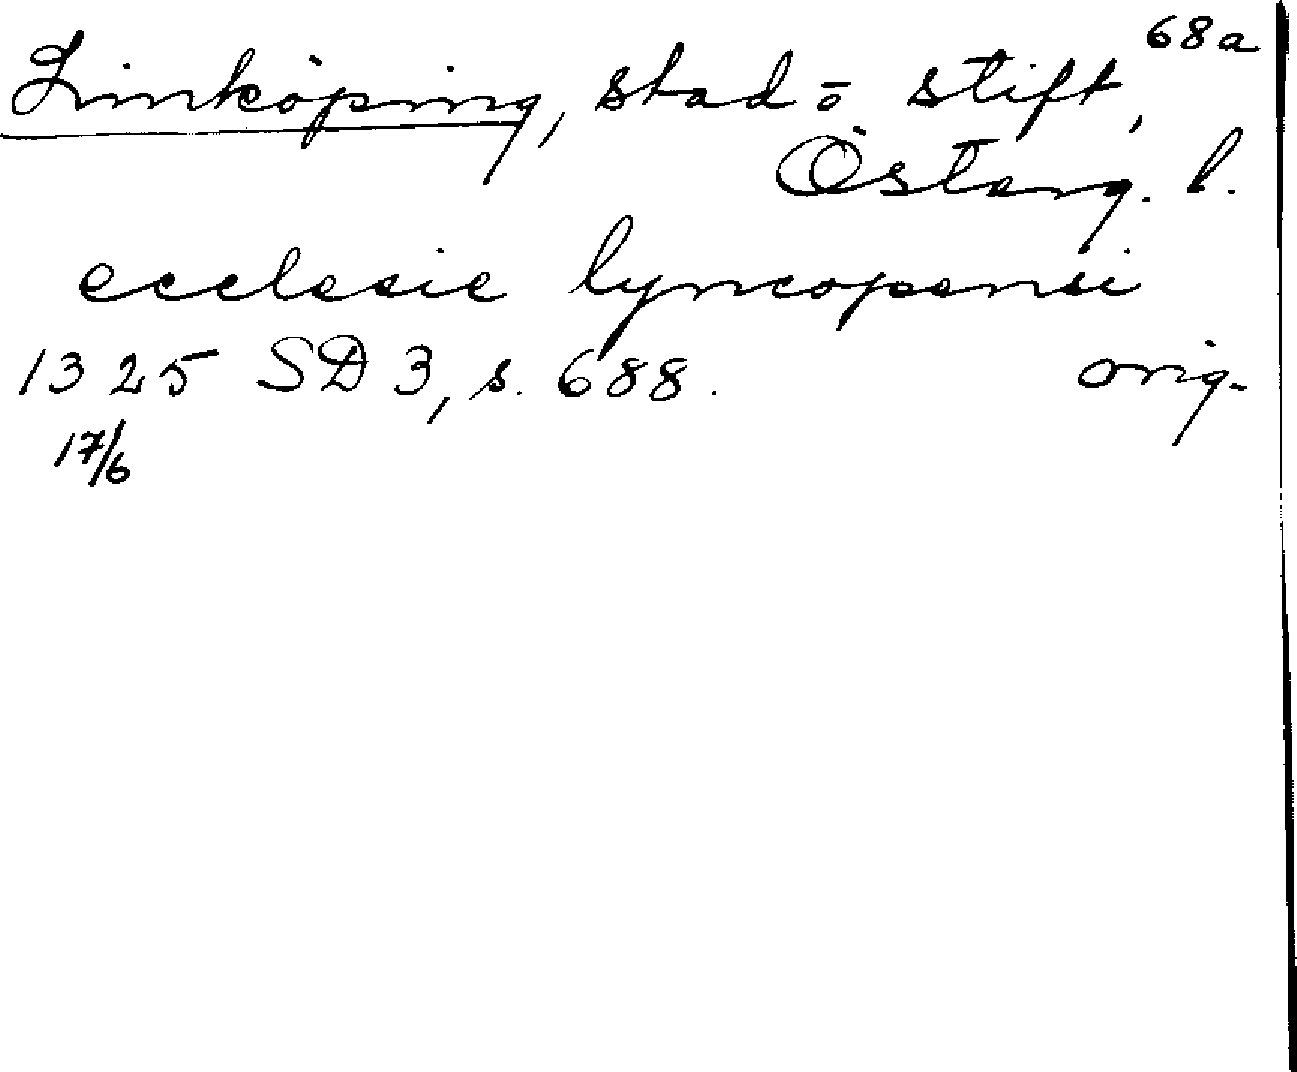 68a
Linköping, stad o stift,
Österg. l.
ecclesie lyncopensi
1325 SD 3, s. 688. orig.
17/6